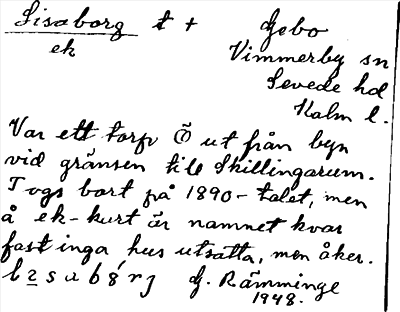 Lisaborg t +
ek
Gebo
Vimmerby sn
Sevede hd
Kalm l.
Var ett torp Ö ut från byn
vid gränsen till Skillingarum.
Togs bort på 1890-talet, men
å ek-kart är namnet kvar
fast inga hus utsatta, men åker.
G. Rämminge
1948.